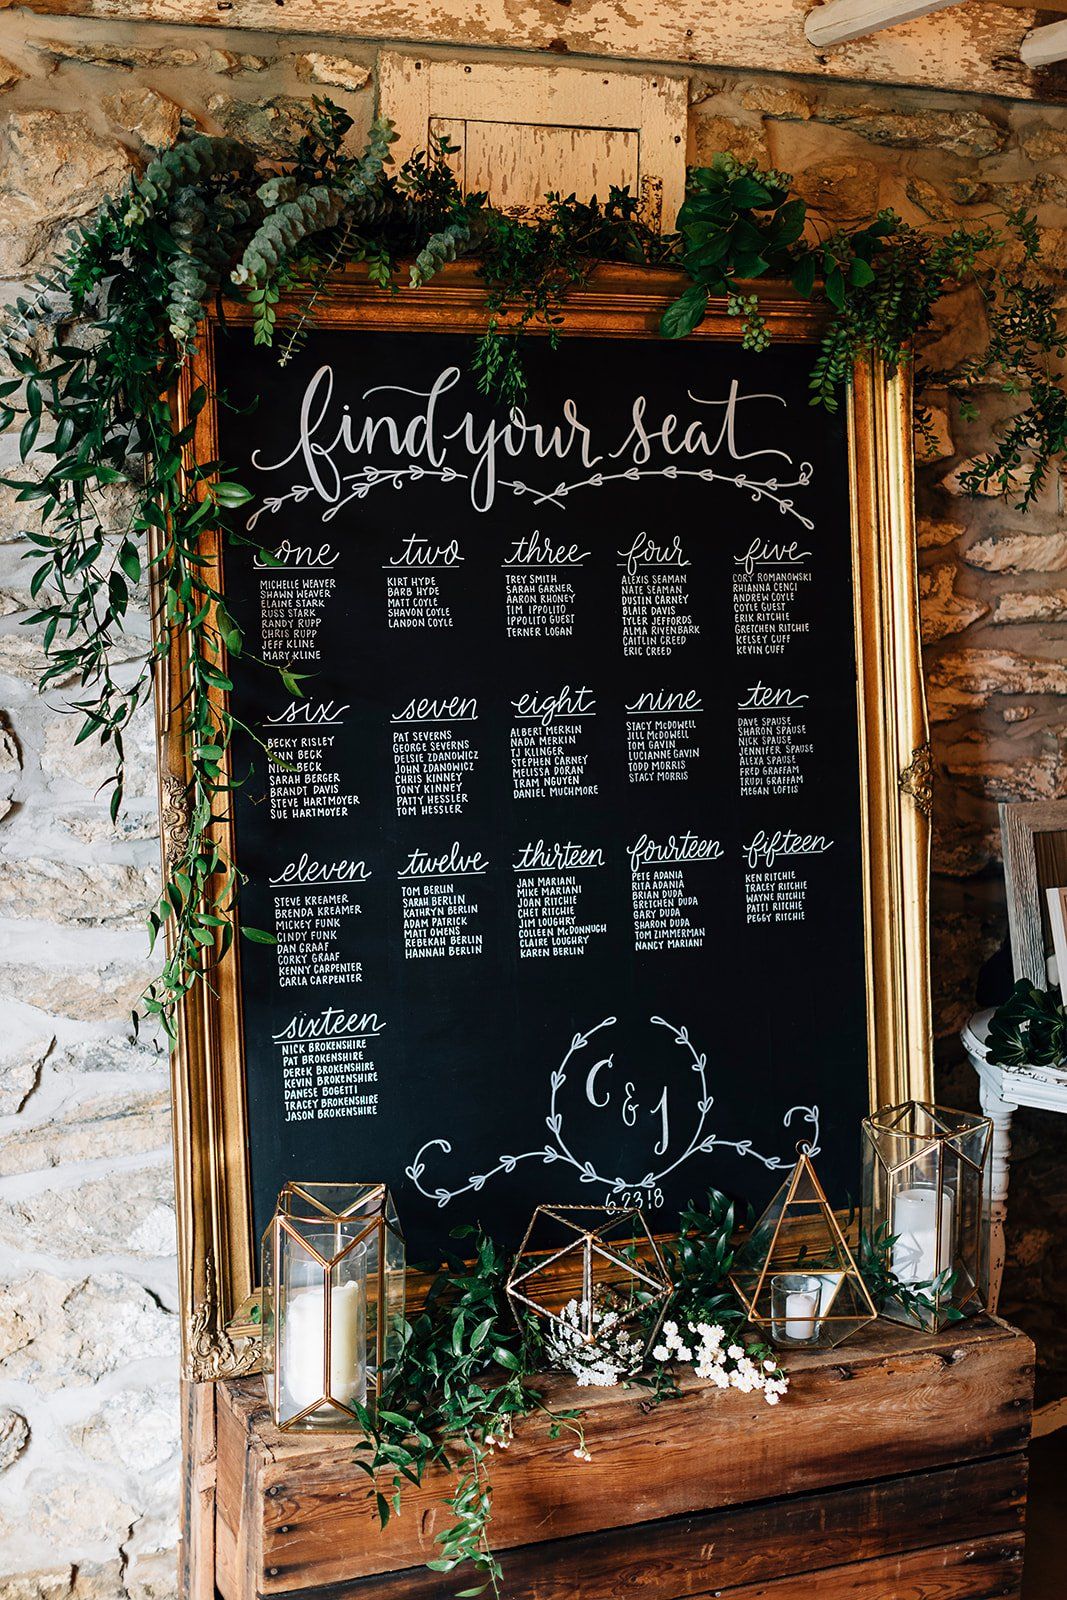 find your seat
one
MICHELLE WEAVER
SHAWN WEAVER
ELAINE STARK
RUSS STARK
RANDY RUPP
CHRIS RUPP
JEFF KLINE
MARY KLINE
two
KIRT HYDE
BARB HYDE
MATT COYLE
SHAVON COYLE
LANDON COYLE
three
TREY SMITH
SARAH GARNER
AARON RHONEY
TIM IPPOLITO
IPPOLITO GUEST
TERNER LOGAN
four
ALEXIS SEAMAN
NATE SEAMAN
DUSTIN CARNEY
BLAIR DAVIS
TYLER JEFFORDS
ALMA RIVENBARK
CAITLIN CREED
ERIC CREED
five
CORY ROMANOWSKI
RHIANNA CENCI
ANDREW COYLE
COYLE GUEST
ERIK RITCHIE
GRETCHEN RITCHIE
KELSEY CUFF
KEVIN CUFF
six
BECKY RISLEY
BECK
NICK BECK
SARAH BERGER
BRANDT DAVIS
STEVE HARTMOYER
SUE HARTMOYER
seven
PAT SEVERNS
GEORGE SEVERNS
DELSIE ZDANOWICZ
JOHN ZDANOWICZ
CHRIS KINNEY
TONY KINNEY
PATTY HESSLER
TOM HESSLER
eight
ALBERT MERKIN
NADA MERKIN
TJ KLINGER
STEPHEN CARNEY
MELISSA DORAN
TRAM NGUYEN
DANIEL MUCHMORE
nine
STACY McDOWELL
JILL McDOWELL
TOM GAVIN
LUCIANNE GAVIN
TODD MORRIS
STACY MORRIS
ten
DAVE SPAUSE
SHARON SPAUSE
NICK SPAUSE
JENNIFER SPAUSE
ALEXA SPAUSE
FRED GRAFFAM
TRUDI GRAFFAM
MEGAN LOFTIS
eleven
STEVE KREAMER
BRENDA KREAMER
MICKEY FUNK
CINDY FUNK
DAN GRAAF
CORKY GRAAF
KENNY CARPENTER
CARLA CARPENTER
twelve
TOM BERLIN
SARAH BERLIN
KATHRYN BERLIN
ADAM PATRICK
MATT OWENS
REBEKAH BERLIN
HANNAH BERLIN
thirteen
JAN MARIANI
MIKE MARIANI
JOAN RITCHIE
CHET RITCHIE
JIM LOUGHRY
COLLEEN McDONNUGH
CLAIRE LOUGHRY
KAREN BERLIN
fourteen
PETE ADANIA
RITA ADANIA
BRIAN DUDA
GRETCHEN DUDA
GARY DUDA
SHARON DUDA
TOM ZIMMERMAN
NANCY MARIANI
fifteen
KEN RITCHIE
TRACEY RITCHIE
WAYNE RITCHIE
PATTI RITCHIE
PEGGY RITCHIE
sixteen
NICK BROKENSHIRE
PAT BROKENSHIRE
DEREK BROKENSHIRE
KEVIN BROKENSHIRE
DANESE BOGETTI
TRACEY BROKENSHIRE
JASON BROKENSHIRE
C & J
6.23.18